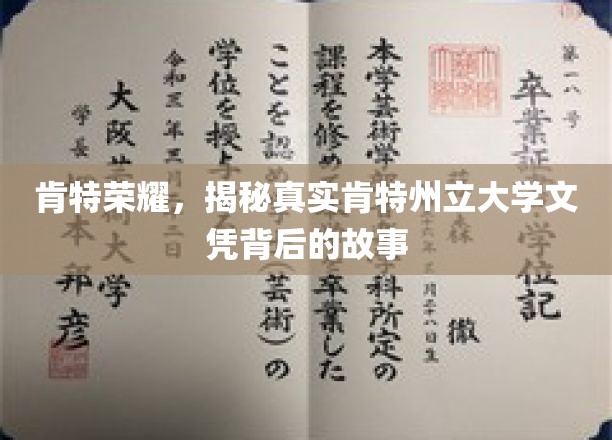 第一八号
卒業証書・学位記
徹
本学芸術学
科所定の
課程を修め
を卒業した
ことを認め
(芸術)の
学位を授与
令和三年三月
二日
大阪芸術大学
学長
本邦彦
肯特荣耀，揭秘真实肯特州立大学文
凭背后的故事